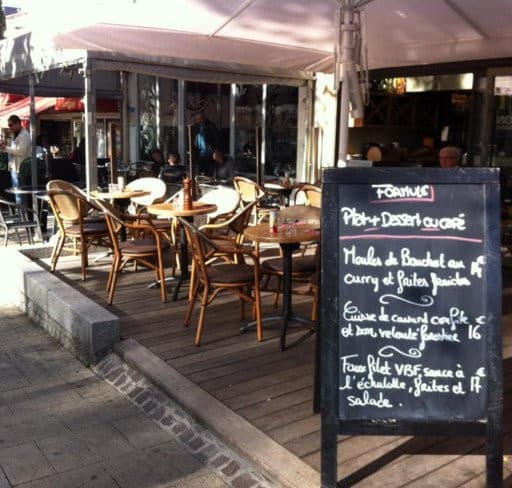 FORMULE
Plat + Dessert ou café
Moules de Bouchot au
curry et frites fraiches 14€
Cuisse de canard confite €
et son velouté forestier 16
Faux filet VBF, sauce à €
l'échalotte, frites et 17
salade.